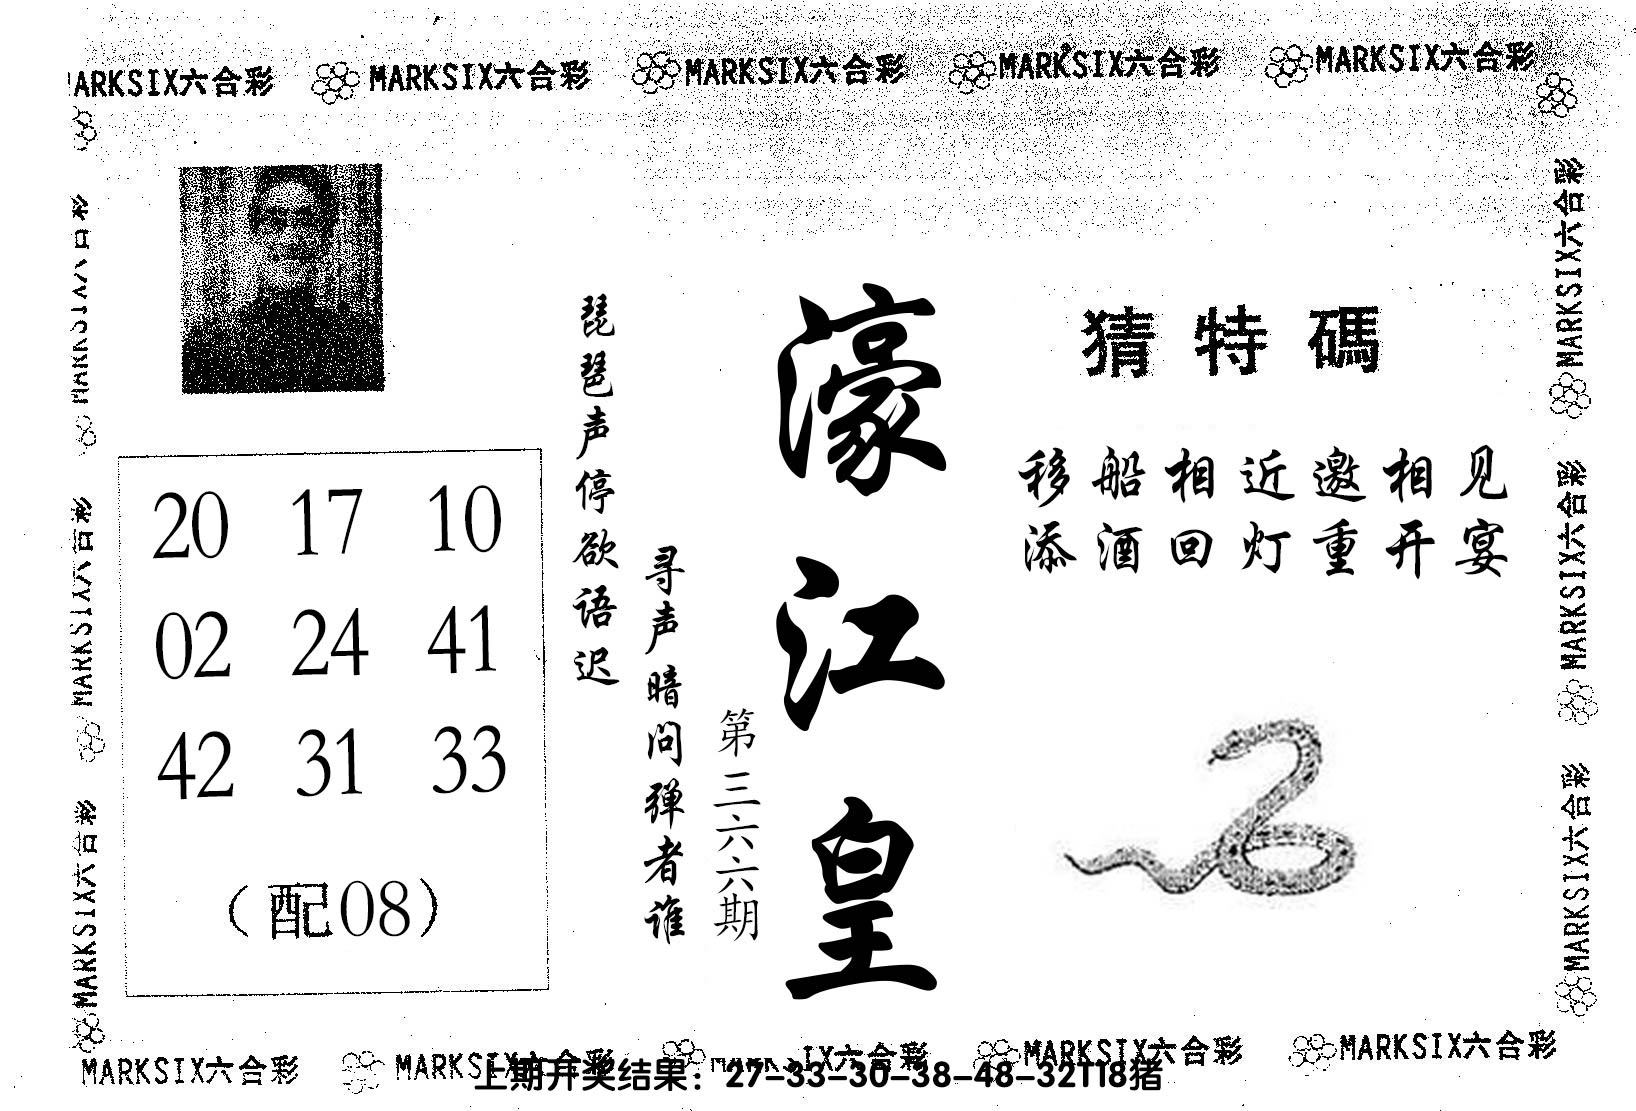 MARKSIX六合彩 MARKSIX六合彩 MARKSIX六合彩 MARKSIX六合彩 MARKSIX六合彩
猜特碼
移船相近邀相见
添酒回灯重开宴
濠江皇
第三六六期
琵琶声停欲语迟
寻声暗问弹者谁
20 17 10
02 24 41
42 31 33
（配08）
MARKSIX六合彩
MARKSIX六合彩
MARKSIX六合彩
MARKSIX六合彩
MARKSIX六合彩
MARKSIX六合彩
MARKSIX六合彩 MARKSIX六合彩 MARKSIX六合彩 MARKSIX六合彩
上期开奖结果：27-33-30-38-48-32T18猪